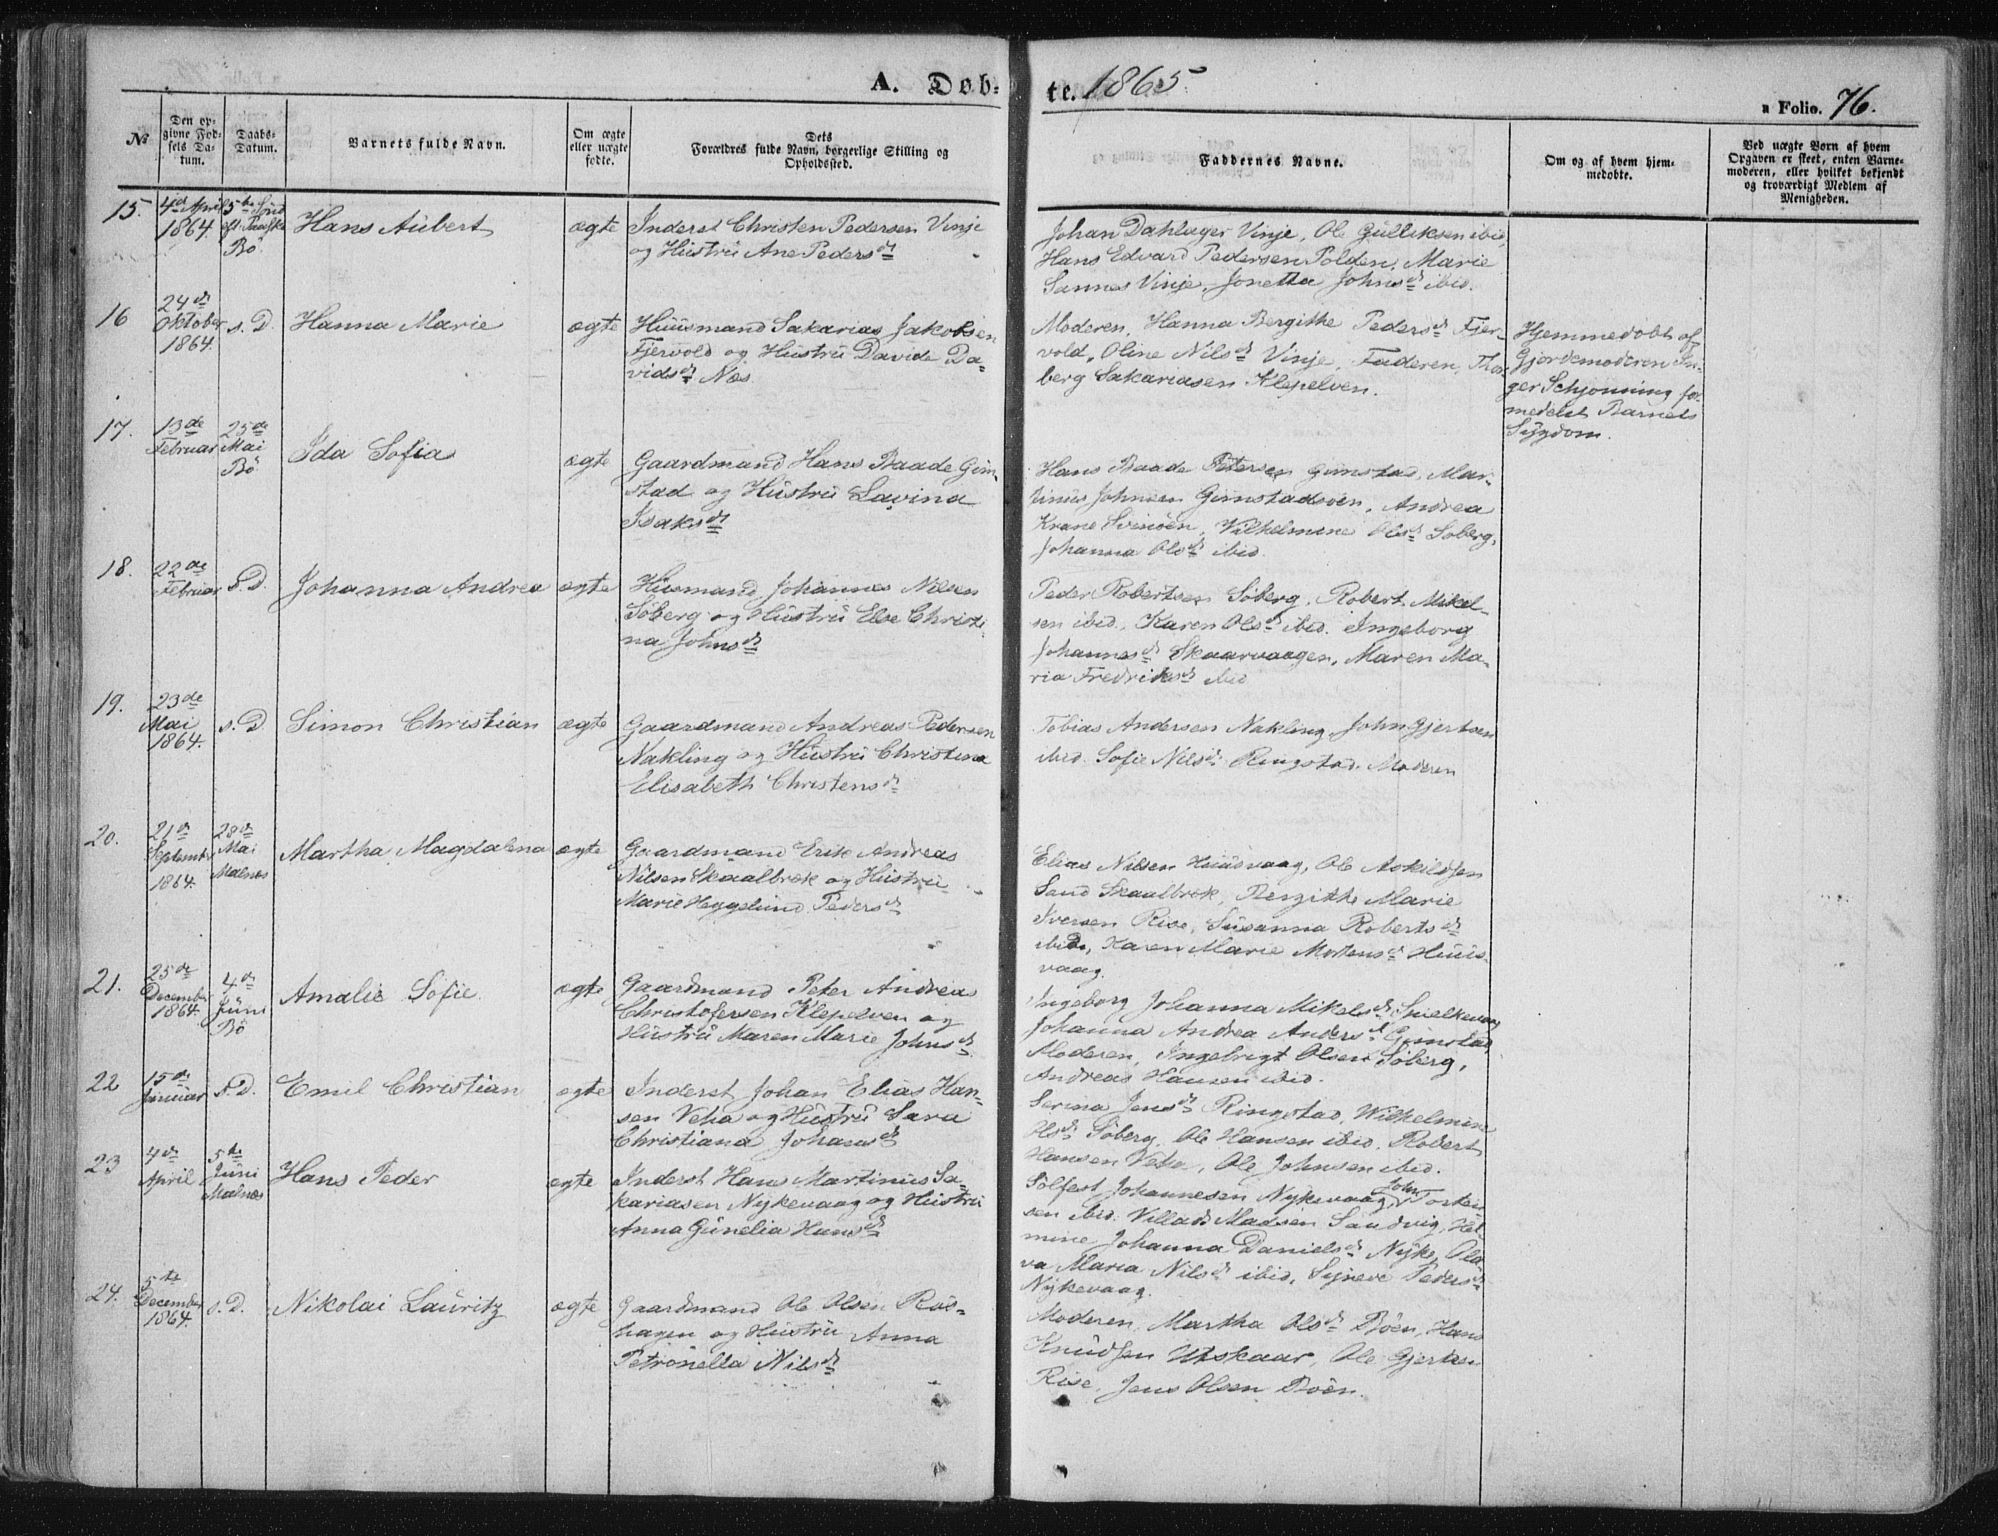 A. Døb-
te. 1865.
a Folio. 76.
№
Den op-
givne Fød-
sels Da-
tum.
Daabs-
Datum.
Barnets fulde Navn.
Om ægte
eller uægte
fødte.
Dets
Forældres fulde Navn, borgerlige Stilling og
Opholdssted.
Faddernes Navne.
Om og af hvem hjem-
medøbte.
Ved uægte Børn af hvem
Opgaven er skeet, enten Barne-
moderen, eller hvilket bekjendt
og troværdigt Medlem af
Menigheden.
15.
4de April
1864.
5te Sønd.
eft. Paaske
Bö
Hans Aubert
ægte
Inderst Christen Pedersen Vinje
og Hustru Ane Pedersd.
Johan Dahlager Vinje, Ole Gulliksen ibid
Hans Edvard Pedersen Polden, Marie
Sannes Vinje, Jonetta Johnsd. ibid.
16
24de
Oktober
1864.
s. D.
Hanna Marie
ægte
Huusmand Sakarias Jakobsen
Fjervold og Hustru Davide Da-
vidsd. Næs
Moderen, Hanna Bergithe Pedersd. Fjer-
vold, Oline Nilsd. Vinje, Faderen, Thor-
berg Sakariasen Klepelven.
Hjemmedöbt af
Gjordemoderen In-
ger Schjønning for-
medelst Barnets
Sygdom.
17.
13de
Februar
25de
Mai
Bö
Ida Sofia
ægte
Gaardmand Hans Baade Gim-
stad og Hustru Lavina
Isaksd.
Hans Baade Petersen Gimstad, Mar-
tinus Johnsen Gimstadöien, Andrea
Krane Svinöen, Vilhelmine Olsd. Söberg,
Johanna Olsd. ibid.
18.
22de
Februar
s. D.
Johanna Andrea
ægte
Husmand Johannes Nilsen
Söberg og Hustru Else Christi-
na Johnsd.
Peder Robertsen Söberg, Robert Mikel-
sen ibid, Karen Olsd. ibid. Ingeborg
Johannesd. Skaarvaagen, Maren Ma-
ria Fredriksd. ibid
19.
23de
Mai
1864.
s. D.
Simon Christian
ægte
Gaardmand Andreas Pedersen
Nakling og Hustru Christina
Elisabeth Christensd.
Tobias Andersen Nakling, John Gjertsen
ibid. Sofie Nilsd. Ringstad. Moderen
20.
21de
Septembr
1864.
28de
Mai
Malnæs
Martha Magdalena
ægte
Gaardmand Erik Andreas
Nilsen Skaalbrek og Hustru
Marie Heggelund Pedersd.
Elias Nilsen Huusvaag, Ole Askildsen
Sand Skaalbrek, Bergithe Marie
Iversen Rise, Susanna Robertsd.
ibid, Karen Marie Mortensd. Huus-
vaag.
21.
25de
December
1864.
4de
Juni
Bö
Amalie Sofie
ægte
Gaardmand Peter Andreas
Christofersen Klepelven og
Hustru Maren Marie Johnsd.
Ingeborg Johanna Mikelsd. Spielkevaag
Johanna Andrea Andersd. Gimstad,
Moderen, Ingebrigt Olsen Söberg,
Andreas Hansen ibid.
22
15de
Januar
s. D.
Emil Christian
ægte
Inderst Johan Elias Han-
sen Veha og Hustru Sara
Christiana Johansd.
Serina Jensd. Ringstad, Wilhelmine
Olsd. Söberg, Ole Hansen ibid. Robert
Hansen Veha, Ole Johnsen ibid.
23
4de
April
5te
Juni
Malnæs
Hans Peder
ægte
Inderst Hans Martinus Sa-
kariasen Nykevaag og Hustru
Anna Gunelia Hansd.
Sölfest Johannesen Nykevaag, John Torken-
sen ibid. Villads Madsen Sandvig, Hel-
mine Johanna Danielsd. Nyke, Ola-
va Maria Nilsd. ibid, Syneve Pedersd.
Nykevaag.
24.
5te
December
1864.
s. D.
Nikolai Lauritz
ægte
Gaardmand Ole Olsen Rös-
hagen og Hustru Anna
Petronella Nilsd.
Moderen, Martha Olsd. Böen, Hans
Knudsen Utskaar, Ole Gjertsen
Rise, Jens Olsen Böen.